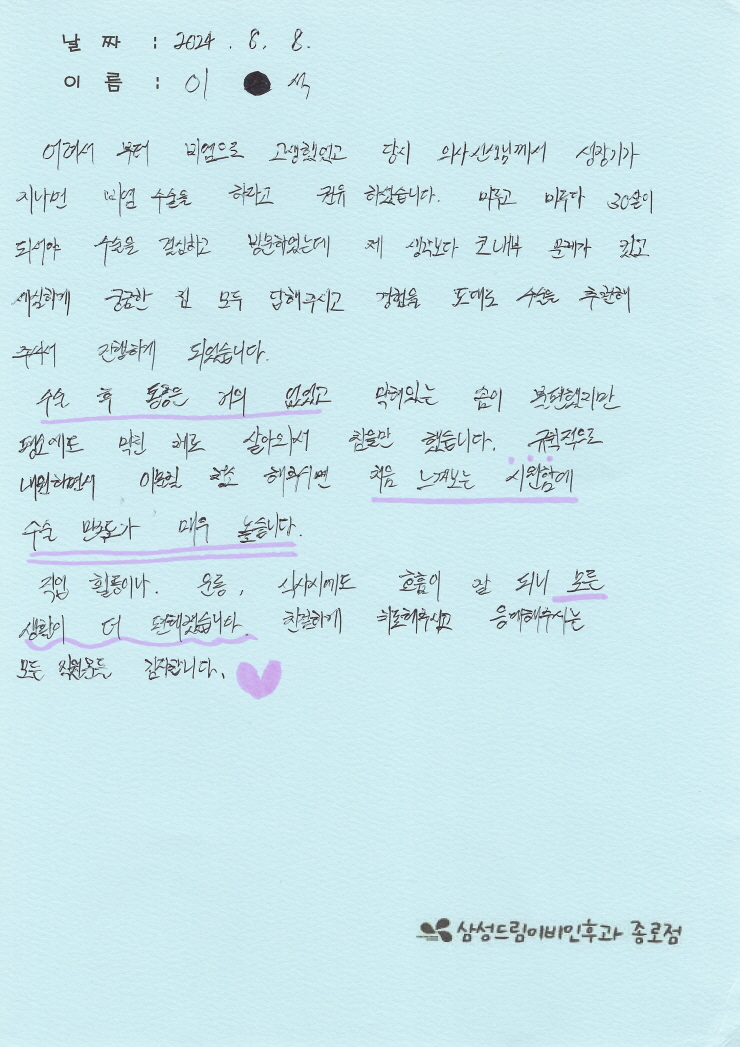 날 짜 : 2024. 8. 8.
이 름 : 이 석
어려서 부터 비염으로 고생했었고 당시 의사선생님께서 성장기가
지나면 비염 수술을 하라고 권유 하셨습니다. 미루고 미루다 30살이
되서야 수술을 결심하고 방문하였는데 제 생각보다 코내부 문제가 컸고
세심하게 궁금한 점 모두 답해주시고 경험을 토대로 수술을 추천해
주셔서 진행하게 되었습니다.
수술 후 통증은 거의 없었고 막혀있는 숨이 불편했지만
평소에도 막힌 채로 살아와서 참을만 했습니다. 규칙적으로
내원하면서 이물질 청소 해주시면 처음 느껴보는 시원함에
수술 만족도가 매우 높습니다.
직업 활동이나. 운동, 식사시에도 호흡이 잘 되니 모든
생활이 더 편해졌습니다. 친절하게 치료해주시고 응대해주시는
모든 직원분들 감사합니다.
삼성드림이비인후과 종로점